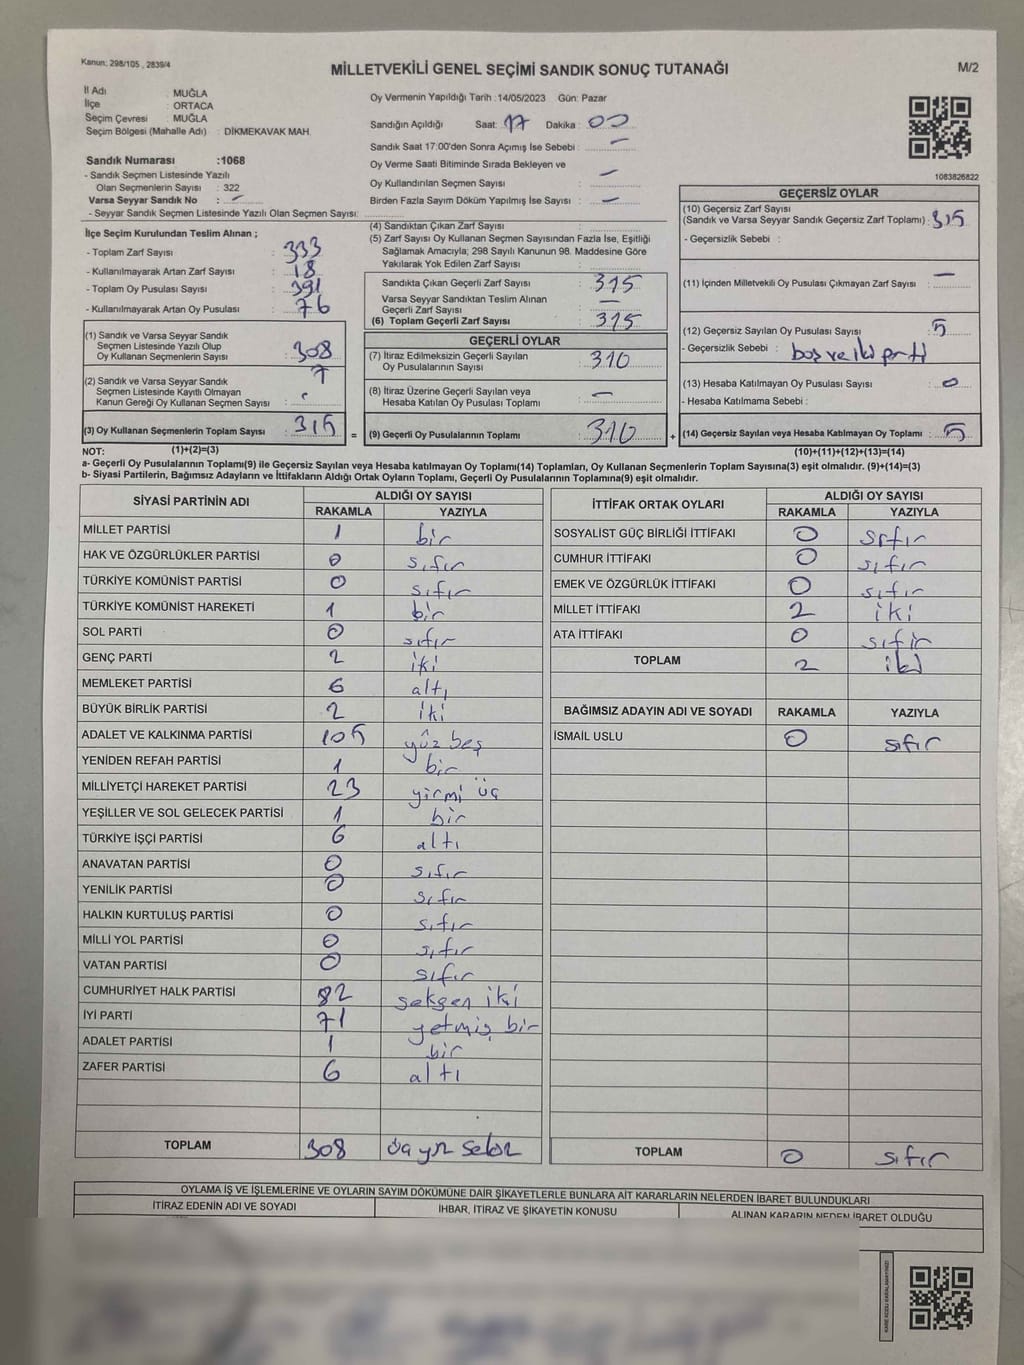 Kanun: 298/105 , 2839/4
MİLLETVEKİLİ GENEL SEÇİMİ SANDIK SONUÇ TUTANAĞI
M/2
İl Adı : MUĞLA
İlçe : ORTACA
Seçim Çevresi : MUĞLA
Seçim Bölgesi (Mahalle Adı) : DİKMEKAVAK MAH.
Sandık Numarası :1068
- Sandık Seçmen Listesinde Yazılı
Olan Seçmenlerin Sayısı : 322
Varsa Seyyar Sandık No : –
- Seyyar Sandık Seçmen Listesinde Yazılı Olan Seçmen Sayısı:
İlçe Seçim Kurulundan Teslim Alınan ;
- Toplam Zarf Sayısı : 333
- Kullanılmayarak Artan Zarf Sayısı : 18
- Toplam Oy Pusulası Sayısı : 391
- Kullanılmayarak Artan Oy Pusulası : 76
(1) Sandık ve Varsa Seyyar Sandık
Seçmen Listesinde Yazılı Olup
Oy Kullanan Seçmenlerin Sayısı : 308
(2) Sandık ve Varsa Seyyar Sandık 7
Seçmen Listesinde Kayıtlı Olmayan
Kanun Gereği Oy Kullanan Seçmen Sayısı :
(3) Oy Kullanan Seçmenlerin Toplam Sayısı : 315
Oy Vermenin Yapıldığı Tarih :14/05/2023 Gün: Pazar
Sandığın Açıldığı Saat: 17 Dakika : 00
Sandık Saat 17:00'den Sonra Açımış İse Sebebi : –
Oy Verme Saati Bitiminde Sırada Bekleyen ve
Oy Kullandırılan Seçmen Sayısı : –
Birden Fazla Sayım Döküm Yapılmış İse Sayısı : –
(4) Sandıktan Çıkan Zarf Sayısı :
(5) Zarf Sayısı Oy Kullanan Seçmen Sayısından Fazla İse, Eşitliği
Sağlamak Amacıyla; 298 Sayılı Kanunun 98. Maddesine Göre
Yakılarak Yok Edilen Zarf Sayısı :
Sandıkta Çıkan Geçerli Zarf Sayısı : 315
Varsa Seyyar Sandıktan Teslim Alınan
Geçerli Zarf Sayısı : –
(6) Toplam Geçerli Zarf Sayısı : 315
GEÇERLİ OYLAR
(7) İtiraz Edilmeksizin Geçerli Sayılan
Oy Pusulalarının Sayısı : 310
(8) İtiraz Üzerine Geçerli Sayılan veya
Hesaba Katılan Oy Pusulası Toplamı : –
= (9) Geçerli Oy Pusulalarının Toplamı : 310
1083826822
GEÇERSİZ OYLAR
(10) Geçersiz Zarf Sayısı
(Sandık ve Varsa Seyyar Sandık Geçersiz Zarf Toplamı) : 315
- Geçersizlik Sebebi :
(11) İçinden Milletvekili Oy Pusulası Çıkmayan Zarf Sayısı : –
(12) Geçersiz Sayılan Oy Pusulası Sayısı : 5
- Geçersizlik Sebebi : boş ve iki prti
(13) Hesaba Katılmayan Oy Pusulası Sayısı : 0
- Hesaba Katılmama Sebebi :
+ (14) Geçersiz Sayılan veya Hesaba Katılmayan Oy Toplamı : 5
NOT: (1)+(2)=(3)
(10)+(11)+(12)+(13)=(14)
a- Geçerli Oy Pusulalarının Toplamı(9) ile Geçersiz Sayılan veya Hesaba katılmayan Oy Toplamı(14) Toplamları, Oy Kullanan Seçmenlerin Toplam Sayısına(3) eşit olmalıdır. (9)+(14)=(3)
b- Siyasi Partilerin, Bağımsız Adayların ve İttifakların Aldığı Ortak Oyların Toplamı, Geçerli Oy Pusulalarının Toplamına(9) eşit olmalıdır.
SİYASİ PARTİNİN ADI ALDIĞI OY SAYISI
RAKAMLA YAZIYLA
MİLLET PARTİSİ 1 bir
HAK VE ÖZGÜRLÜKLER PARTİSİ 0 sıfır
TÜRKİYE KOMÜNİST PARTİSİ 0 sıfır
TÜRKİYE KOMÜNİST HAREKETİ 1 bir
SOL PARTİ 0 sıfır
GENÇ PARTİ 2 iki
MEMLEKET PARTİSİ 6 altı
BÜYÜK BİRLİK PARTİSİ 2 iki
ADALET VE KALKINMA PARTİSİ 105 yüz beş
YENİDEN REFAH PARTİSİ 1 bir
MİLLİYETÇİ HAREKET PARTİSİ 23 yirmi üç
YEŞİLLER VE SOL GELECEK PARTİSİ 1 bir
TÜRKİYE İŞÇİ PARTİSİ 6 altı
ANAVATAN PARTİSİ 0 sıfır
YENİLİK PARTİSİ 0 sıfır
HALKIN KURTULUŞ PARTİSİ 0 sıfır
MİLLİ YOL PARTİSİ 0 sıfır
VATAN PARTİSİ 0 sıfır
CUMHURİYET HALK PARTİSİ 82 seksen iki
İYİ PARTİ 71 yetmiş bir
ADALET PARTİSİ 1 bir
ZAFER PARTİSİ 6 altı
TOPLAM 308
İTTİFAK ORTAK OYLARI ALDIĞI OY SAYISI
RAKAMLA YAZIYLA
SOSYALİST GÜÇ BİRLİĞİ İTTİFAKI 0 sıfır
CUMHUR İTTİFAKI 0 sıfır
EMEK VE ÖZGÜRLÜK İTTİFAKI 0 sıfır
MİLLET İTTİFAKI 2 iki
ATA İTTİFAKI 0 sıfır
TOPLAM 2 iki
BAĞIMSIZ ADAYIN ADI VE SOYADI RAKAMLA YAZIYLA
İSMAİL USLU 0 sıfır
TOPLAM 0 sıfır
OYLAMA İŞ VE İŞLEMLERİNE VE OYLARIN SAYIM DÖKÜMÜNE DAİR ŞİKAYETLERLE BUNLARA AİT KARARLARIN NELERDEN İBARET BULUNDUKLARI
İTİRAZ EDENİN ADI VE SOYADI İHBAR, İTİRAZ VE ŞİKAYETİN KONUSU ALINAN KARARIN NEDEN İBARET OLDUĞU